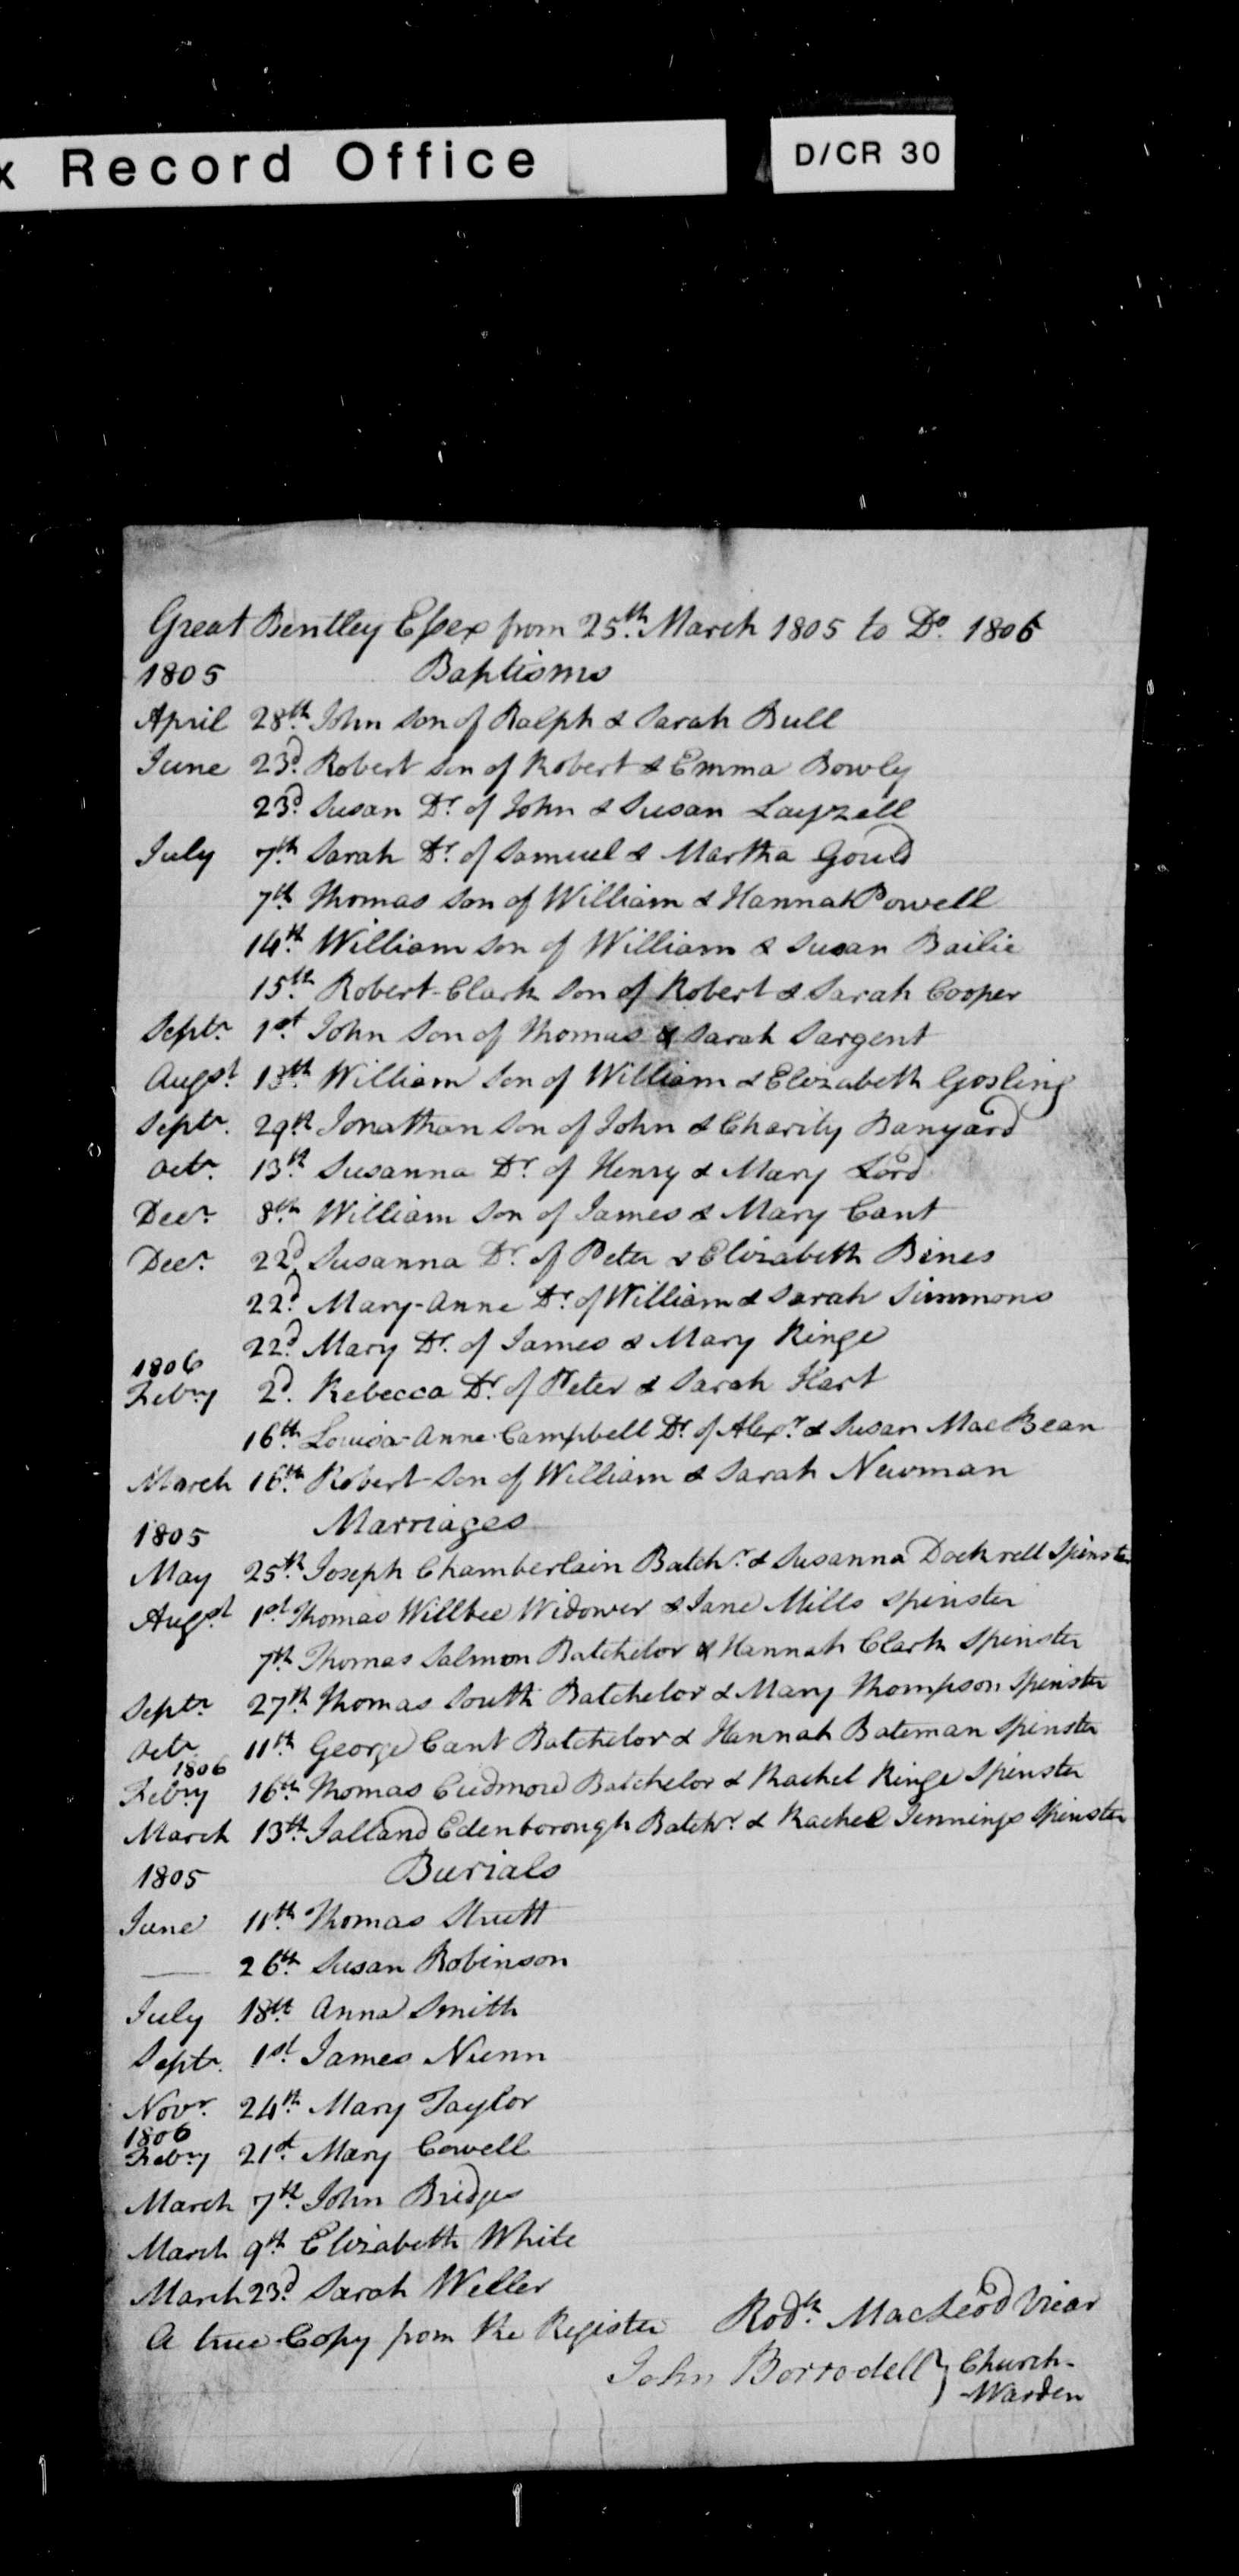 x Record Office
D/CR 30
Great Bentley Eſsex from 25th. March 1805 to Do. 1806
1805 Baptisms
April 28th. John Son of Ralph & Sarah Bull
June 23d. Robert Son of Robert & Emma Bowly
23d. Susan Dr. of John & Susan Layzell
July 7th. Sarah Dr. of Samuel & Martha Gould
7th. Thomas Son of William & Hannah Powell
14th. William Son of William & Susan Bailie
15th. Robert-Clark Son of Robert & Sarah Cooper
Septr. 1st John Son of Thomas & Sarah Sargent
Augst. 13th. William Son of William & Elizabeth Gosling
Septr. 29th Jonathan Son of John & Charity Banyard
Octr. 13th. Susanna Dr. of Henry & Mary Lord
Decr. 8th. William Son of James & Mary Cant
Decr. 22d. Susanna Dr. of Peter & Elizabeth Bines
22d. Mary-Anne Dr. of William & Sarah Simmons
22d. Mary Dr. of James & Mary Ringe
1806
Febry 2d. Rebecca Dr. of Peter & Sarah Hart
16th. Louisa-Anne-Campbell Dr. of Alexr. & Susan MacBean
March 16th. Robert Son of William & Sarah Newman
1805 Marriages
May 25th. Joseph Chamberlain Batchr. & Susanna Dockrell Spinster
Augst. 1st Thomas Willbee Widower & Jane Mills Spinster
7th. Thomas Salmon Batchelor & Hannah Clark Spinster
Septr. 27th Thomas South Batchelor & Mary Thompson Spinster
Octr. 11th. George Cant Batchelor & Hannah Bateman Spinster
1806
Febry 16th Thomas Cudmore Batchelor & Rachel Ringe Spinster
March 13th. Jalland Edenborough Batchr. & Rachel Jennings Spinster
1805 Burials
June 11th. Thomas Strutt
— 26th. Susan Robinson
July 18th. Anna Smith
Septr. 1st. James Nunn
Novr. 24th. Mary Taylor
1806
Febry 21st. Mary Cowell
March 7th. John Bridges
March 9th. Elizabeth White
March 23d. Sarah Weller
A true Copy from the Register Rodk. MacLeod Vicar
John Borrodell } Church-
-Warden